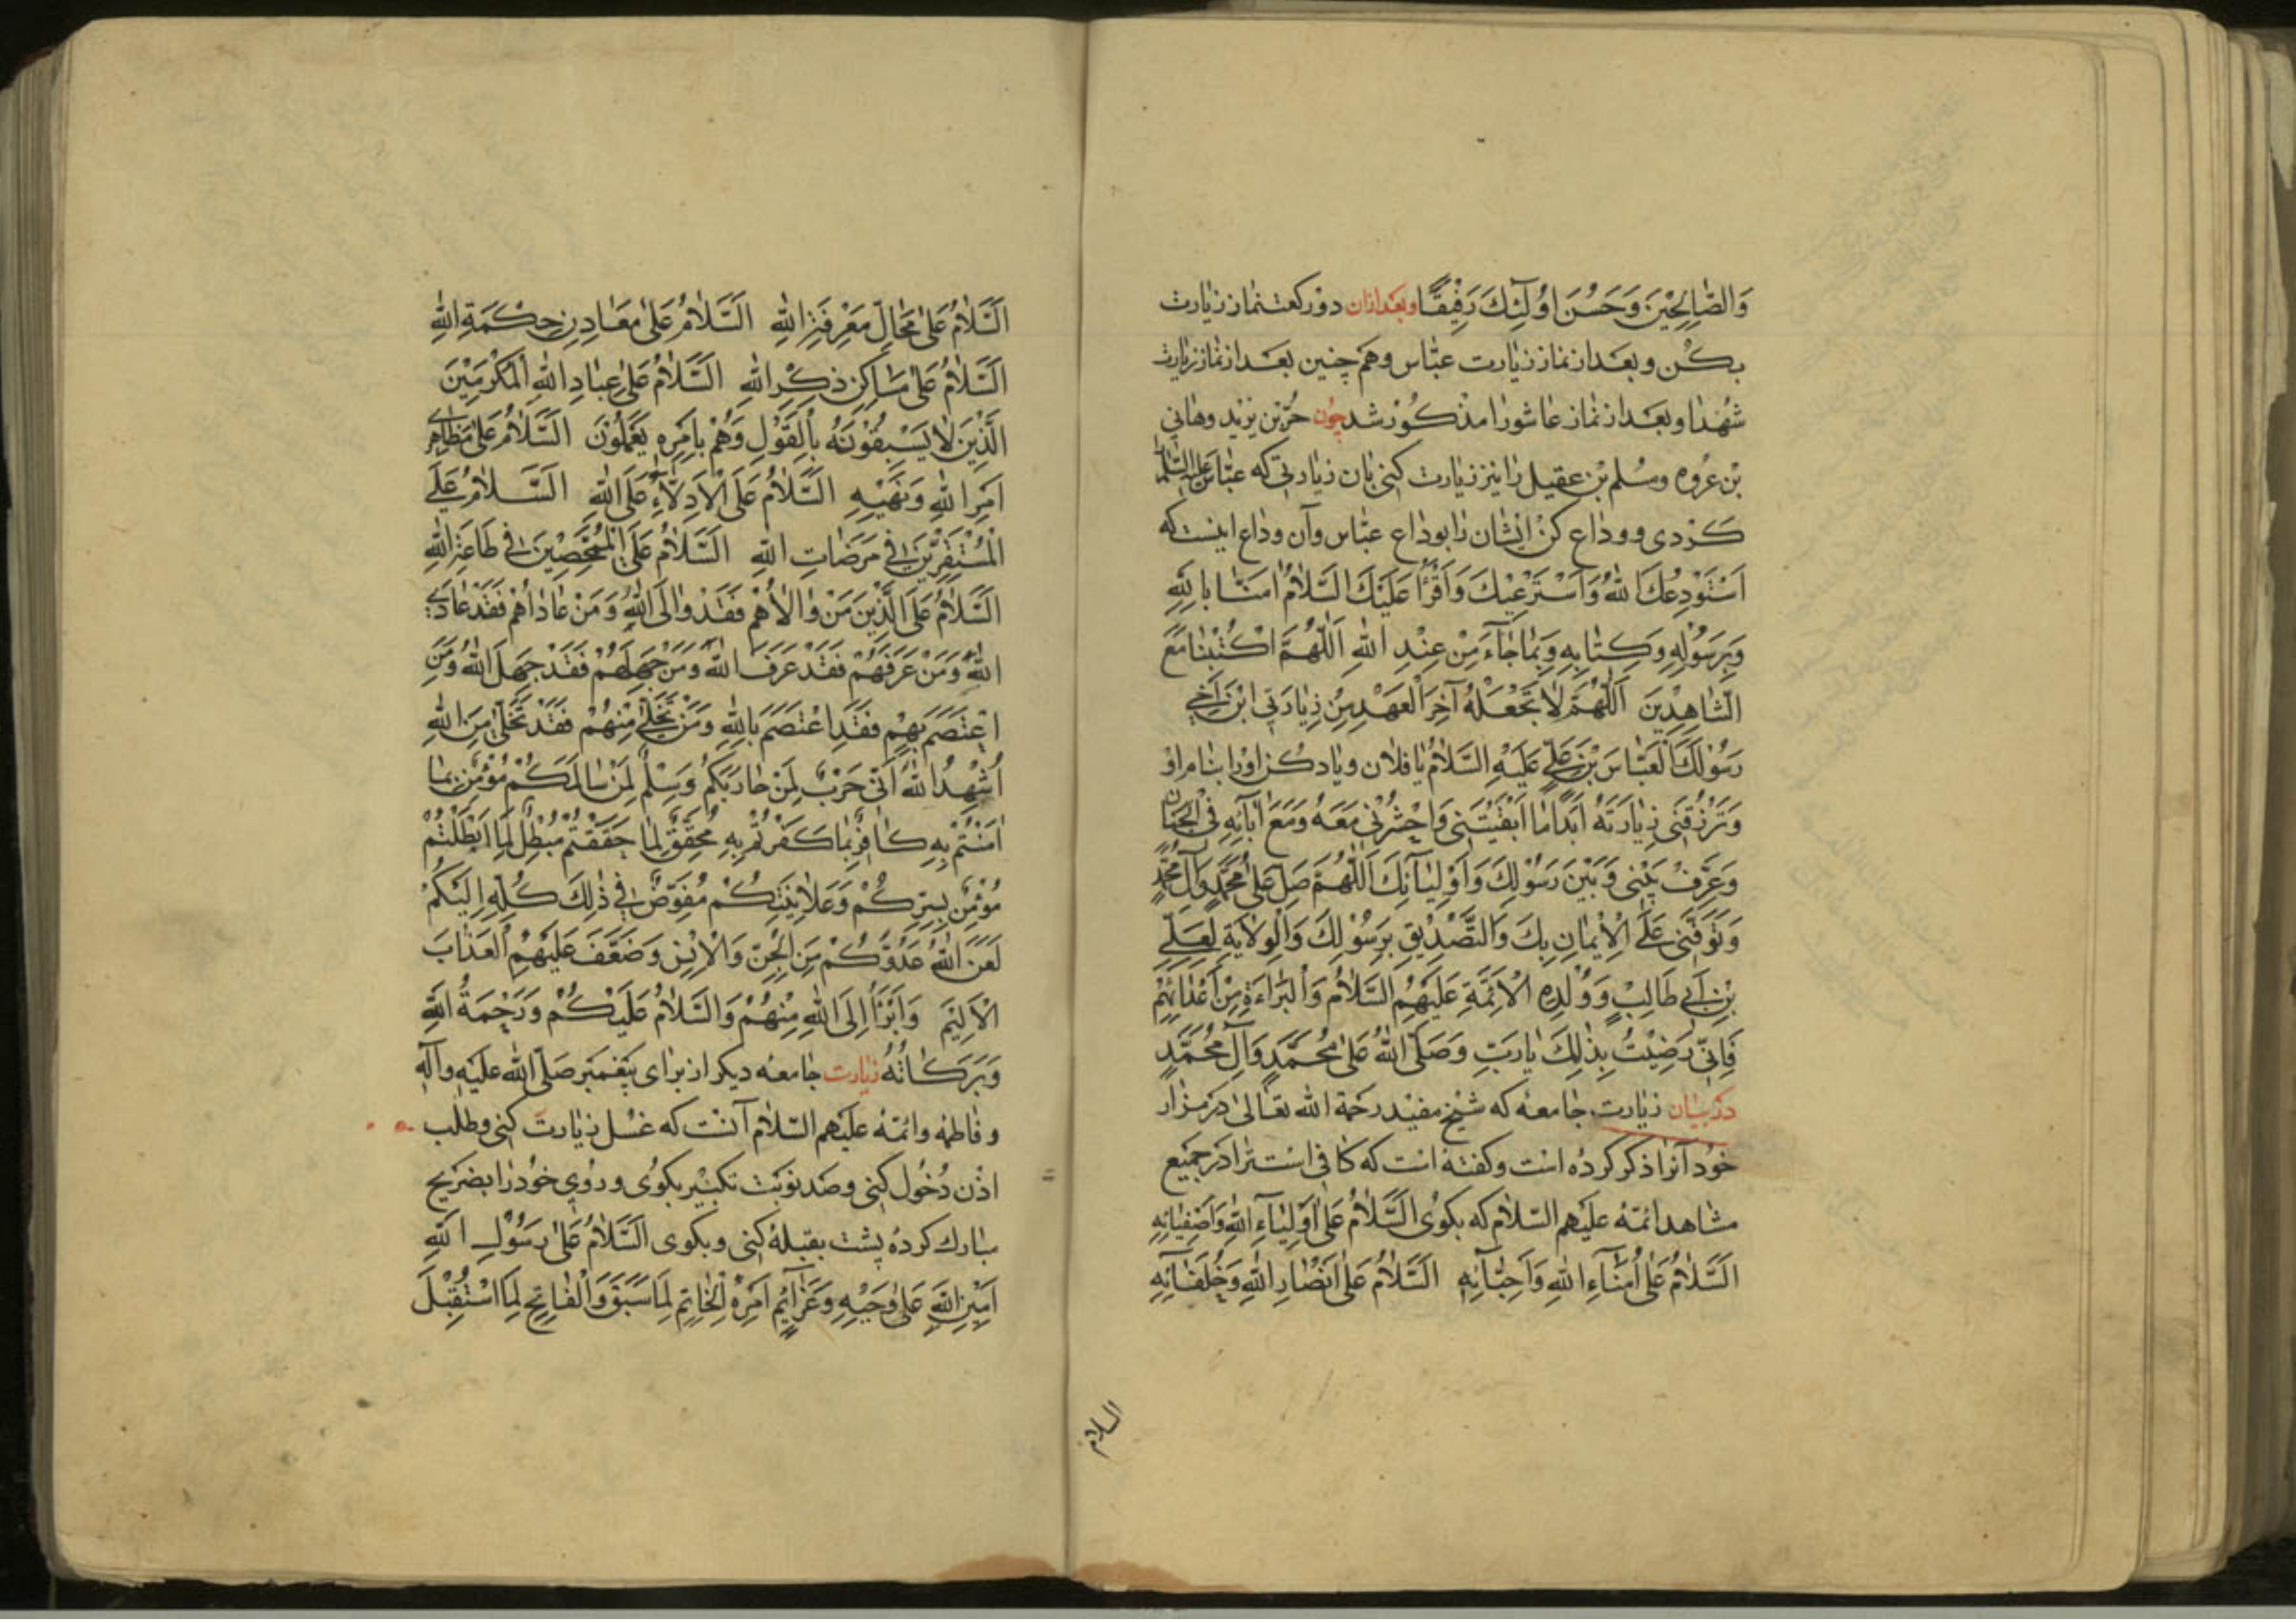 وَالصَّالِحِيْنَ وَحَسُنَ اوُلٰٓئِكَ رَفِيْقًا وبعدازان دوركعت نماز زيارت
بكن وبعد از نماز زيارت عبّاس وهم چنين بعد از نماز زيارت
شهدا وبعد از نماز عاشورا مذكور شد چون حرّ بن يزيد وهاني
بن عروه ومسلم بن عقيل را نيز زيارت كنى بان زيارتى كه عبّاس عليه السّلم را
كردى ووداع كن ايشان را بوداع عبّاس وآن وداع اينست كه
اَسْتَوْدِعُكَ اللهَ وَاَسْتَرْعِيْكَ وَاَقْرَأُ عَلَيْكَ السَّلَامُ امَنَّا بِاللهِ
وَبِرَسُوْلِهِ وَكِتَابِهِ وَبِمَا جَآءَ مِنْ عِنْدِ اللهِ اَللّٰهُمَّ اكْتُبْنَا مَعَ
الشَّاهِدِيْنَ اَللّٰهُمَّ لَا تَجْعَلْهُ آخِرَ الْعَهْدِ مِنْ زِيَارَتِي ابْنَ اَخِي
رَسُوْلِكَ الْعَبَّاسَ بْنَ عَلِيٍّ عَلَيْهِ السَّلَامُ يا فلان وياد كن اورا بنام او
وَتَرْزُقَنِي زِيَارَتَهُ اَبَدًا مَا اَبْقَيْتَنِي وَاحْشُرْنِي مَعَهُ وَمَعَ آبَآئِهِ فِي الْجِنَانِ
وَعَرِّفْ بَيْنِي وَبَيْنَ رَسُوْلِكَ وَاَوْلِيَآئِكَ اَللّٰهُمَّ صَلِّ عَلٰى مُحَمَّدٍ وَآلِ مُحَمَّدٍ
وَتَوَفَّنِي عَلَى الْاِيْمَانِ بِكَ وَالتَّصْدِيْقِ بِرَسُوْلِكَ وَالْوِلَايَةِ لِعَلِيِّ
بْنِ اَبِي طَالِبٍ وَوُلْدِهِ الْاَئِمَّةِ عَلَيْهِمُ السَّلَامُ وَالْبَرَاءَةِ مِنْ اَعْدَائِهِمْ
فَاِنِّي رَضِيْتُ بِذٰلِكَ يَا رَبِّ وَصَلَّى اللهُ عَلٰى مُحَمَّدٍ وَآلِ مُحَمَّدٍ
در بيان زيارت جامعه كه شيخ مفيد رحمة الله تعالى در مزار
خود آنرا ذكر كرده است وكفته است كه كافى است ترا در جميع
مشاهد ائمّه عليهم السّلام كه بكوى اَلسَّلَامُ عَلٰى اَوْلِيَآءِ اللهِ وَاَصْفِيَائِهِ
اَلسَّلَامُ عَلٰى اُمَنَآءِ اللهِ وَاَحِبَّآئِهِ اَلسَّلَامُ عَلٰى اَنْصَارِ اللهِ وَخُلَفَآئِهِ
السلام
اَلسَّلَامُ عَلٰى مَحَالِّ مَعْرِفَةِ اللهِ اَلسَّلَامُ عَلٰى مَعَادِنِ حِكْمَةِ اللهِ
اَلسَّلَامُ عَلٰى مَسَاكِنِ ذِكْرِ اللهِ اَلسَّلَامُ عَلٰى عِبَادِ اللهِ الْمُكْرَمِيْنَ
الَّذِيْنَ لَا يَسْبِقُوْنَهُ بِالْقَوْلِ وَهُمْ بِاَمْرِهِ يَعْمَلُوْنَ اَلسَّلَامُ عَلٰى مَظَاهِرِي
اَمْرِ اللهِ وَنَهْيِهِ اَلسَّلَامُ عَلَى الْاَدِلَّآءِ عَلَى اللهِ اَلسَّلَامُ عَلَى
الْمُسْتَقِرِّيْنَ فِي مَرْضَاتِ اللهِ اَلسَّلَامُ عَلَى الْمُمَحَّصِيْنَ فِي طَاعَةِ اللهِ
اَلسَّلَامُ عَلَى الَّذِيْنَ مَنْ وَالَاهُمْ فَقَدْ وَالَى اللهَ وَمَنْ عَادَاهُمْ فَقَدْ عَادَى
اللهَ وَمَنْ عَرَفَهُمْ فَقَدْ عَرَفَ اللهَ وَمَنْ جَهِلَهُمْ فَقَدْ جَهِلَ اللهَ وَمَنِ
اعْتَصَمَ بِهِمْ فَقَدِ اعْتَصَمَ بِاللهِ وَمَنْ تَخَلّٰى مِنْهُمْ فَقَدْ تَخَلّٰى مِنَ اللهِ
اُشْهِدُ اللهَ اَنِّي حَرْبٌ لِمَنْ حَارَبَكُمْ وَسِلْمٌ لِمَنْ سَالَمَكُمْ مُؤْمِنٌ بِمَا
اٰمَنْتُمْ بِهِ كَافِرٌ بِمَا كَفَرْتُمْ بِهِ مُحَقِّقٌ لِمَا حَقَّقْتُمْ مُبْطِلٌ لِمَا اَبْطَلْتُمْ
مُؤْمِنٌ بِسِرِّكُمْ وَعَلَانِيَتِكُمْ مُفَوِّضٌ فِي ذٰلِكَ كُلِّهِ اِلَيْكُمْ
لَعَنَ اللهُ عَدُوَّكُمْ مِنَ الْجِنِّ وَالْاِنْسِ وَضَعَّفَ عَلَيْهِمُ الْعَذَابَ
الْاَلِيْمَ وَاَبْرَأُ اِلَى اللهِ مِنْهُمْ وَالسَّلَامُ عَلَيْكُمْ وَرَحْمَةُ اللهِ
وَبَرَكَاتُهُ زيارت جامعه ديكر از براى پيغمبر صلّى الله عليه وآله
وفاطمه وائمّه عليهم السّلام آنست كه غسل زيارت كنى وطلب
اذن دخول كنى وصد نوبت تكبير بكوى وروى خود را بضريح
مبارك كرده پشت بقبله كنى وبكوى اَلسَّلَامُ عَلٰى رَسُوْلِ اللهِ
اَمِيْنِ اللهِ عَلٰى وَحْيِهِ وَعَزَآئِمِ اَمْرِهِ الْخَاتِمِ لِمَا سَبَقَ وَالْفَاتِحِ لِمَا اسْتُقْبِلَ